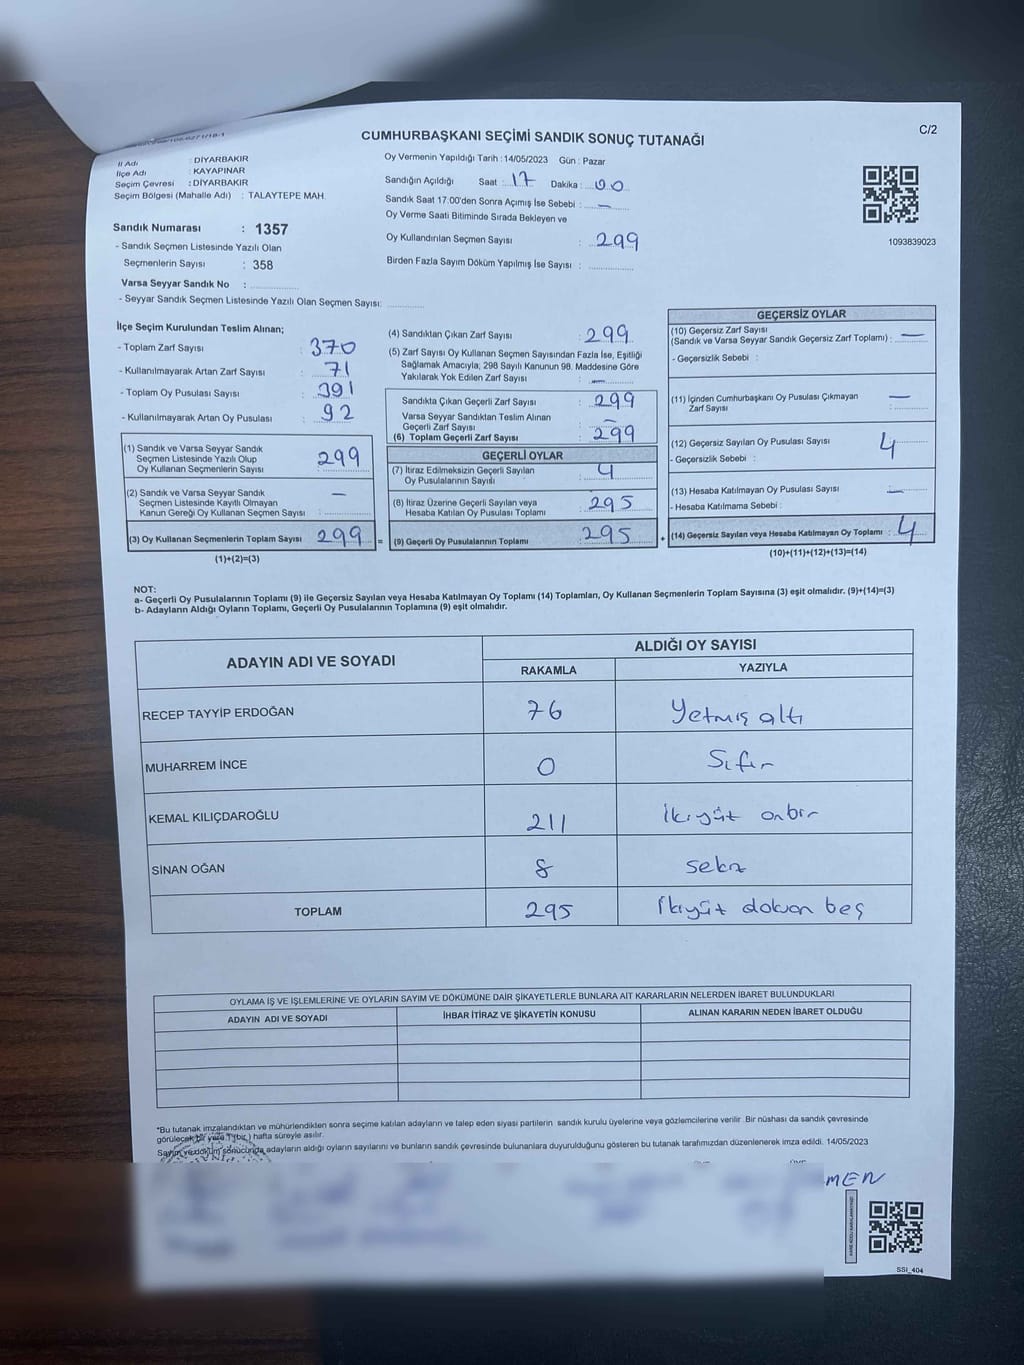 CUMHURBAŞKANI SEÇİMİ SANDIK SONUÇ TUTANAĞI
C/2
İl Adı : DİYARBAKIR
İlçe Adı : KAYAPINAR
Seçim Çevresi : DİYARBAKIR
Seçim Bölgesi (Mahalle Adı) : TALAYTEPE MAH.
Oy Vermenin Yapıldığı Tarih : 14/05/2023 Gün : Pazar
Sandığın Açıldığı Saat : 17 Dakika : 00
Sandık Saat 17:00'den Sonra Açımış İse Sebebi : –
Oy Verme Saati Bitiminde Sırada Bekleyen ve
Oy Kullandırılan Seçmen Sayısı : 299
Birden Fazla Sayım Döküm Yapılmış İse Sayısı :
1093839023
Sandık Numarası : 1357
- Sandık Seçmen Listesinde Yazılı Olan
Seçmenlerin Sayısı : 358
Varsa Seyyar Sandık No :
- Seyyar Sandık Seçmen Listesinde Yazılı Olan Seçmen Sayısı:
İlçe Seçim Kurulundan Teslim Alınan;
- Toplam Zarf Sayısı : 370
- Kullanılmayarak Artan Zarf Sayısı : 71
- Toplam Oy Pusulası Sayısı : 391
- Kullanılmayarak Artan Oy Pusulası : 92
(1) Sandık ve Varsa Seyyar Sandık
Seçmen Listesinde Yazılı Olup
Oy Kullanan Seçmenlerin Sayısı : 299
(2) Sandık ve Varsa Seyyar Sandık
Seçmen Listesinde Kayıtlı Olmayan
Kanun Gereği Oy Kullanan Seçmen Sayısı : –
(3) Oy Kullanan Seçmenlerin Toplam Sayısı : 299 =
(1)+(2)=(3)
(4) Sandıktan Çıkan Zarf Sayısı : 299
(5) Zarf Sayısı Oy Kullanan Seçmen Sayısından Fazla İse, Eşitliği
Sağlamak Amacıyla, 298 Sayılı Kanunun 98. Maddesine Göre
Yakılarak Yok Edilen Zarf Sayısı : –
Sandıkta Çıkan Geçerli Zarf Sayısı : 299
Varsa Seyyar Sandıktan Teslim Alınan
Geçerli Zarf Sayısı : –
(6) Toplam Geçerli Zarf Sayısı : 299
GEÇERLİ OYLAR
(7) İtiraz Edilmeksizin Geçerli Sayılan
Oy Pusulalarının Sayısı : 4
(8) İtiraz Üzerine Geçerli Sayılan veya
Hesaba Katılan Oy Pusulası Toplamı : 295
(9) Geçerli Oy Pusulalarının Toplamı : 295 +
GEÇERSİZ OYLAR
(10) Geçersiz Zarf Sayısı
(Sandık ve Varsa Seyyar Sandık Geçersiz Zarf Toplamı) : –
- Geçersizlik Sebebi :
(11) İçinden Cumhurbaşkanı Oy Pusulası Çıkmayan
Zarf Sayısı : –
(12) Geçersiz Sayılan Oy Pusulası Sayısı : 4
- Geçersizlik Sebebi :
(13) Hesaba Katılmayan Oy Pusulası Sayısı : –
- Hesaba Katılmama Sebebi :
(14) Geçersiz Sayılan veya Hesaba Katılmayan Oy Toplamı : 4
(10)+(11)+(12)+(13)=(14)
NOT:
a- Geçerli Oy Pusulalarının Toplamı (9) ile Geçersiz Sayılan veya Hesaba Katılmayan Oy Toplamı (14) Toplamları, Oy Kullanan Seçmenlerin Toplam Sayısına (3) eşit olmalıdır. (9)+(14)=(3)
b- Adayların Aldığı Oyların Toplamı, Geçerli Oy Pusulalarının Toplamına (9) eşit olmalıdır.
ADAYIN ADI VE SOYADI
ALDIĞI OY SAYISI
RAKAMLA YAZIYLA
RECEP TAYYİP ERDOĞAN 76 Yetmiş altı
MUHARREM İNCE 0 Sıfır
KEMAL KILIÇDAROĞLU 211 İkiyüz onbir
SİNAN OĞAN 8 sekiz
TOPLAM 295 İkiyüz doksan beş
OYLAMA İŞ VE İŞLEMLERİNE VE OYLARIN SAYIM VE DÖKÜMÜNE DAİR ŞİKAYETLERLE BUNLARA AİT KARARLARIN NELERDEN İBARET BULUNDUKLARI
ADAYIN ADI VE SOYADI İHBAR İTİRAZ VE ŞİKAYETİN KONUSU ALINAN KARARIN NEDEN İBARET OLDUĞU
*Bu tutanak imzalandıktan ve mühürlendikten sonra seçime katılan adayların ve talep eden siyasi partilerin sandık kurulu üyelerine veya gözlemcilerine verilir. Bir nüshası da sandık çevresinde
görülecek bir yere 1 (bir) hafta süreyle asılır.
Sayım ve döküm sonucunda adayların aldığı oyların sayılarını ve bunların sandık çevresinde bulunanlara duyurulduğunu gösteren bu tutanak tarafımızdan düzenlenerek imza edildi. 14/05/2023
MEN
SSI_404